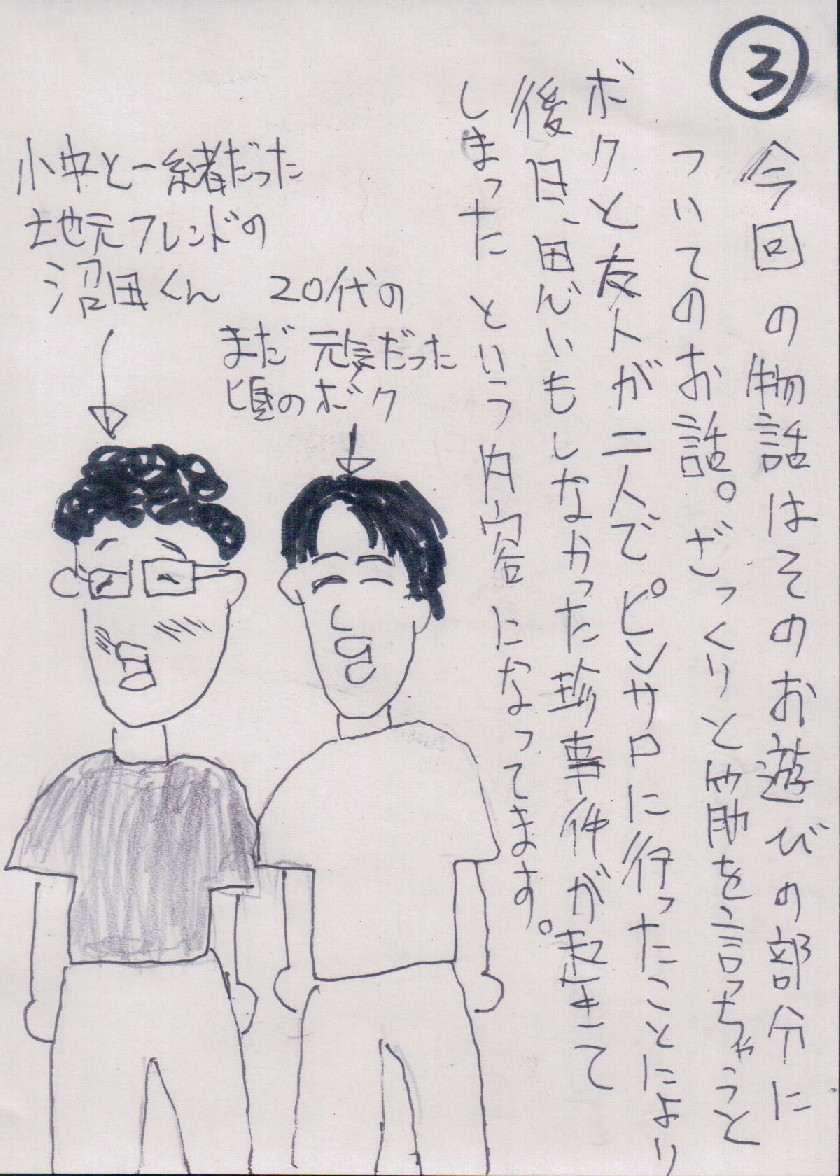 ③
今回の物語はそのお遊びの部分に
ついてのお話。ざっくりと内助を言っちゃうと
ボクと友人が二人でピンサロに行ったことにより
後日、思いもしなかった珍事件が起きて
しまったという内容になってます。
小中と一緒だった
地元フレンドの
沼田くん
20代の
まだ元気だった
頃のボク